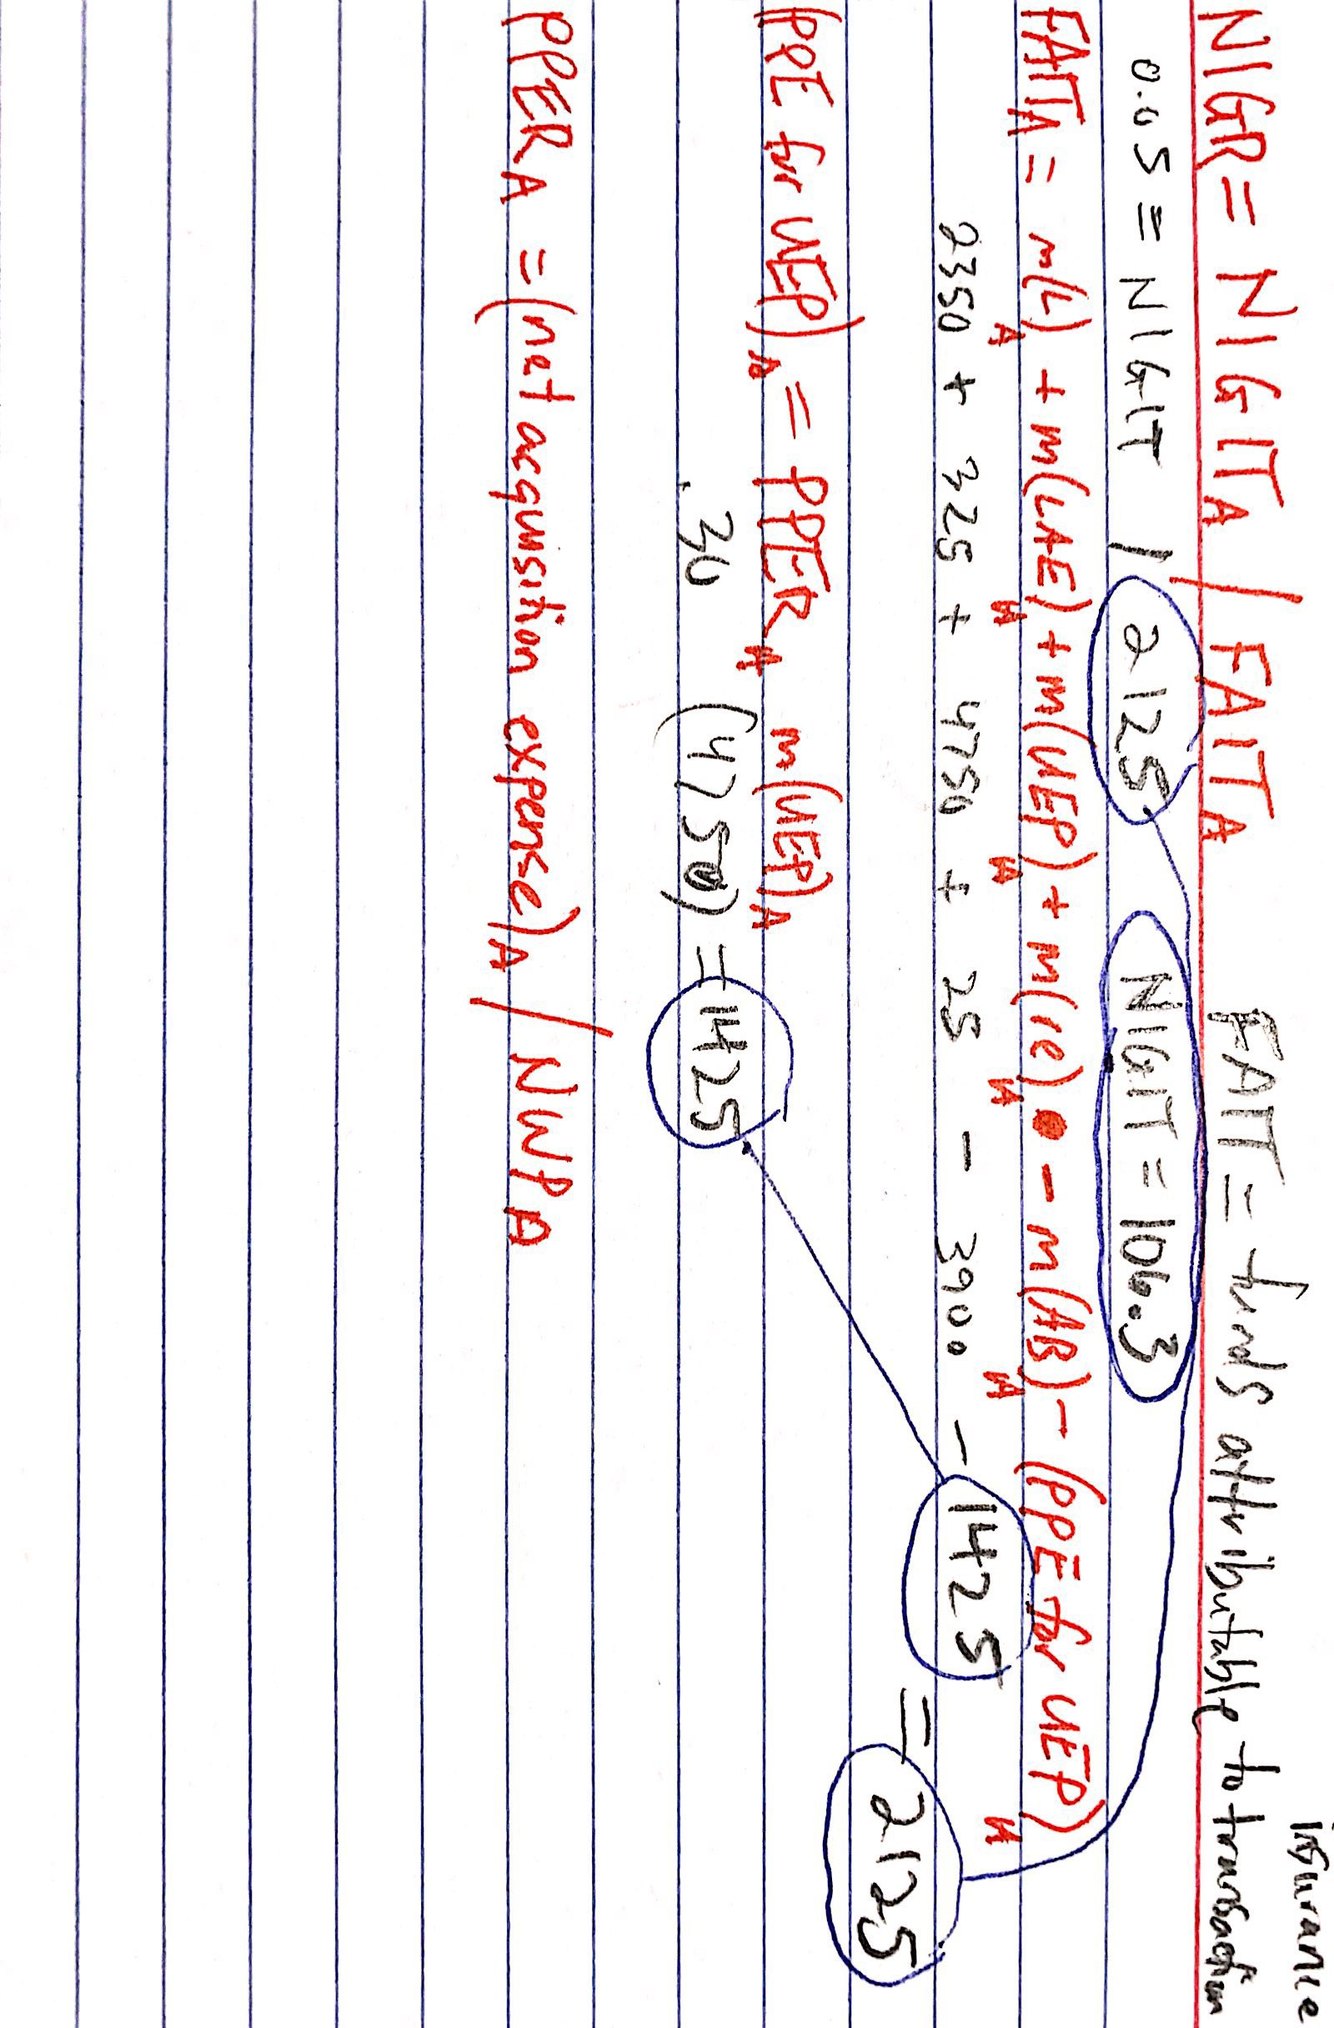 insurance
NIGR = NIGITA / FAITA FAIT = funds attributable to transaction
0.05 = NIGIT / 2125 NIGIT = 106.3
FAITA = m(L)A + m(LAE)A + m(UEP)A + m(ce)A - m(AB)A - (PPE for UEP)A
2350 + 325 + 4750 + 25 - 3900 - 1425 = 2125
(PPE for UEP)A = PPERA m(UEP)A
.30 (4750) = 1425
PPERA = (net acquisition expense)A / NWPA